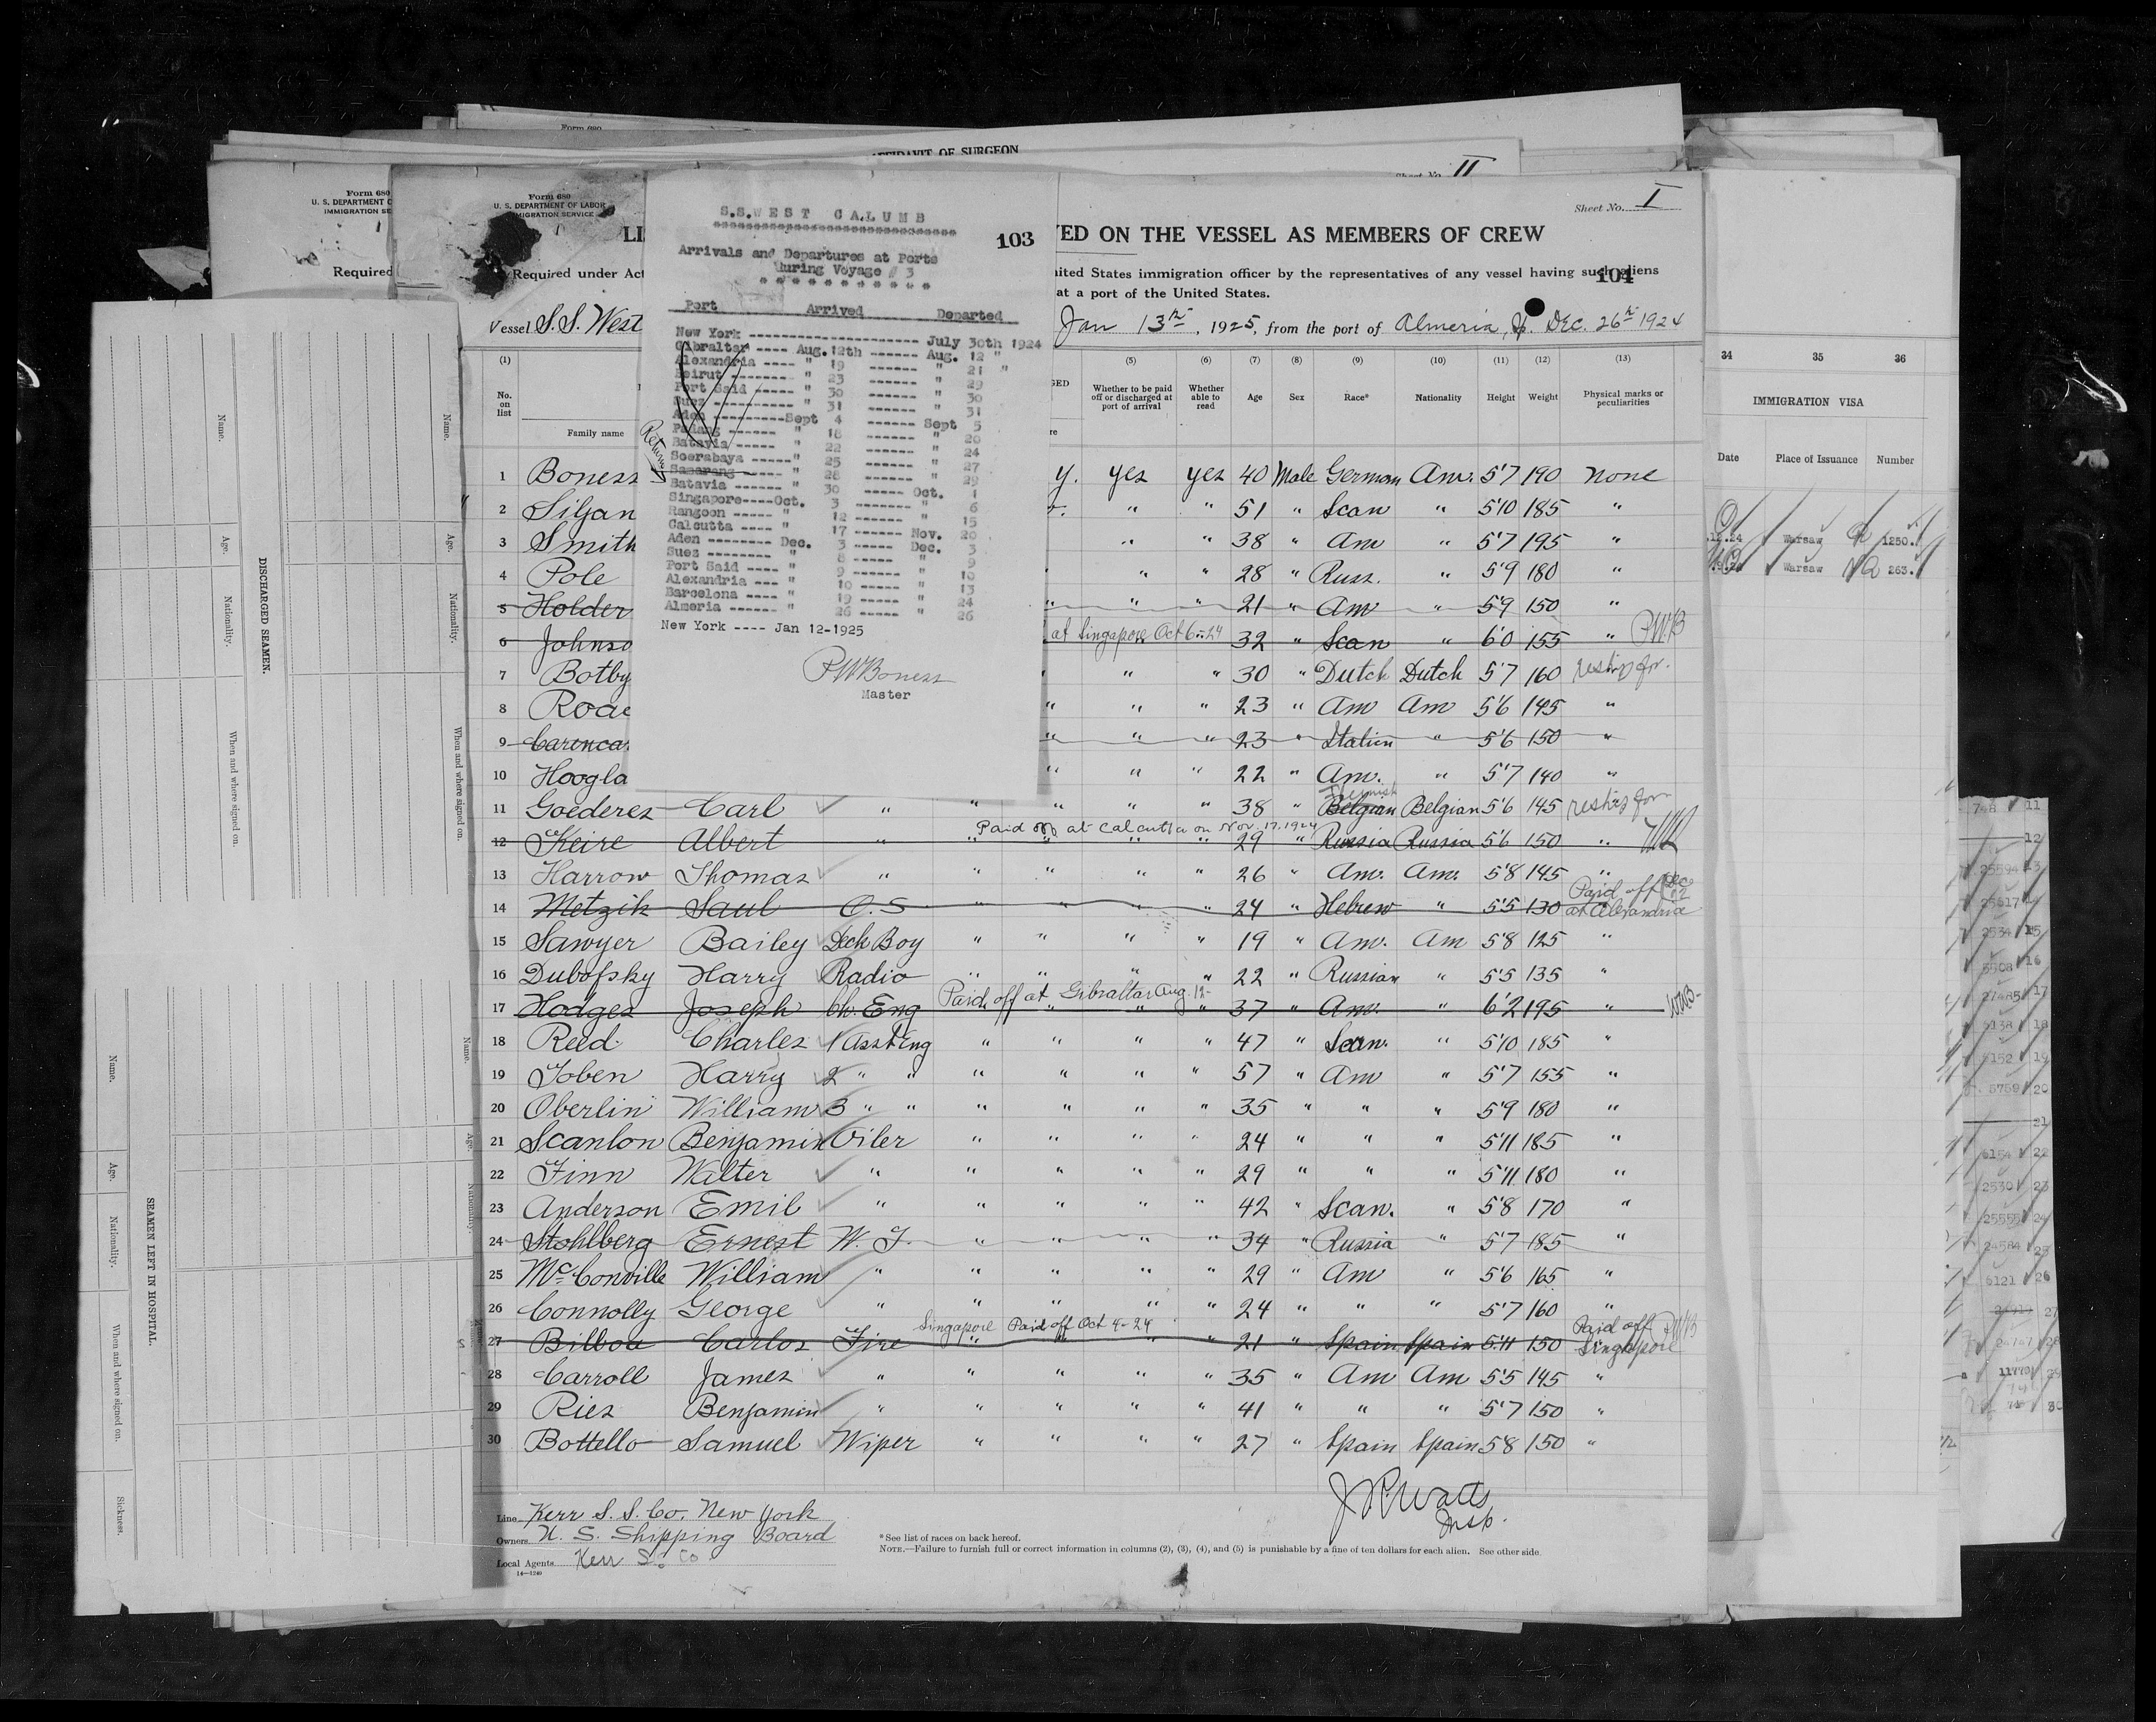 Form 680
AFFIDAVIT OF SURGEON
Sheet No. II
Form 680
U. S. DEPARTMENT O
IMMIGRATION SE
Required
Form 680
U. S. DEPARTMENT OF LABOR
MIGRATION SERVICE
Sheet No. I
LI
VED ON THE VESSEL AS MEMBERS OF CREW
Required under Act
nited States immigration officer by the representatives of any vessel having such aliens
104
at a port of the United States.
Vessel S.S. West
Jan 13th, 1925, from the port of Almeria, Sp. DEC. 26th 1924
S.S. WEST CALUMB
103
Arrivals and Departures at Ports
During Voyage # 3
Port Arrived Departed
New York ---- July 30th 1924
Gibraltar ---- Aug. 12th ------ Aug. 12 "
Alexandria ---- " 19 ------ " 21 "
Beirut ---- " 23 ------ " 29
Port Said ---- " 30 ------ " 30
Suez ---- " 31 ------ " 31
Aden ---- Sept 4 ------ Sept 5
Padang ---- " 18 ------ " 20
Batavia ---- " 22 ------ " 24
Soerabaya ---- " 25 ------ " 27
Samarang ---- " 28 ------ " 29
Return
Batavia ---- " 30 ----- Oct. 1
Singapore ---- Oct. 3 ------ " 6
Rangoon ---- " 12 ------ " 15
Calcutta ---- " 17 ------ Nov. 20
Aden ---- Dec. 3 ----- Dec. 3
Suez ---- " 8 ----- " 9
Port Said ---- " 9 ------ " 10
Alexandria ---- " 10 ----- " 13
Barcelona ---- " 19 ----- " 24
Almeria ---- " 26 ----- " 26
New York ---- Jan 12-1925
P W Boness
Master
(1) (5) (6) (7) (8) (9) (10) (11) (12) (13)
No. on list
Family name
GED
re
Whether to be paid off or discharged at port of arrival
Whether able to read
Age Sex Race* Nationality Height Weight
Physical marks or peculiarities
1 Boness y. yes yes 40 Male German Am. 5'7 190 none
2 Siljan " " 51 " Scan " 5'10 185 "
3 Smith " " 38 " Am " 5'7 195 "
4 Pole " " 28 " Russ. " 5'9 180 "
5 Holder " " " 21 " Am " 5'9 150 "
6 Johnso at Singapore Oct 6-24 32 " Scan " 6'0 155 " PWB
7 Botby " " " 30 " Dutch Dutch 5'7 160
8 Roac " " " 23 " Am Am 5'6 145 "
9 Carenca " " " 23 " Italien " 5'6 150 "
10 Hoogla " " " 22 " Am. " 5'7 140 "
11 Goederes Carl " " " " " 38 " Belgian Flemish Belgian 5'6 145
Paid off at Calcutta on Nov. 17. 1924
12 Keire Albert " " " " " 29 " Russia Russia 5'6 150 "
13 Harrow Thomas " " " " " 26 " Am. Am. 5'8 145 "
14 Metzik Saul O.S " " " " 24 " Hebrew " 5'5 130 Paid off Dec 12 at Alexandria
15 Sawyer Bailey Deck Boy " " " " 19 " Am. Am 5'8 125 "
16 Dubofsky Harry Radio " " " " 22 " Russian " 5'5 135 "
Paid off at Gibraltar Aug. 12-
17 Hodges Joseph Ch. Eng " " " 37 " Am. " 6'2 195 "
18 Reed Charles 1 Asst Eng " " " " 47 " Scan. " 5'10 185 "
19 Toben Harry 2 " " " " " " 57 " Am " 5'7 155 "
20 Oberlin William 3 " " " " " " 35 " " " 5'9 180 "
21 Scanlon Benjamin Oiler " " " " 24 " " " 5'11 185 "
22 Finn Walter " " " " " 29 " " " 5'11 180 "
23 Anderson Emil " " " " " 42 " Scan. " 5'8 170 "
24 Stohlberg Ernest W. T. " " " " 34 " Russia " 5'7 185 "
25 McConville William " " " " " 29 " Am " 5'6 165 "
26 Connolly George " " " " " 24 " " " 5'7 160 "
Singapore Paid off Oct 4-24
27 Bilboa Carlos Fire " " " " 21 " Spain Spain 5'11 150 Paid off Singapore PWB
28 Carroll James " " " " " 35 " Am Am 5'5 145 "
29 Ries Benjamin " " " " " 41 " " " 5'7 150 "
30 Bottello Samuel Wiper " " " " 27 " Spain Spain 5'8 150 "
J P. Watts
Insp.
Line Kerr S. S. Co. New York
Owners U. S. Shipping Board
Local Agents Kerr S. S. Co
14—1240
*See list of races on back hereof.
NOTE.—Failure to furnish full or correct information in columns (2), (3), (4), and (5) is punishable by a fine of ten dollars for each alien. See other side.
34 35 36
IMMIGRATION VISA
Date Place of Issuance Number
Warsaw 1250.
Warsaw 263.
DISCHARGED SEAMEN.
Name. Age. Nationality. When and where signed on.
Name. Age. Nationality. When and where signed on.
SEAMEN LEFT IN HOSPITAL.
Name. Age. Nationality. When and where signed on. Sickness.
Name. Age. Nationality.